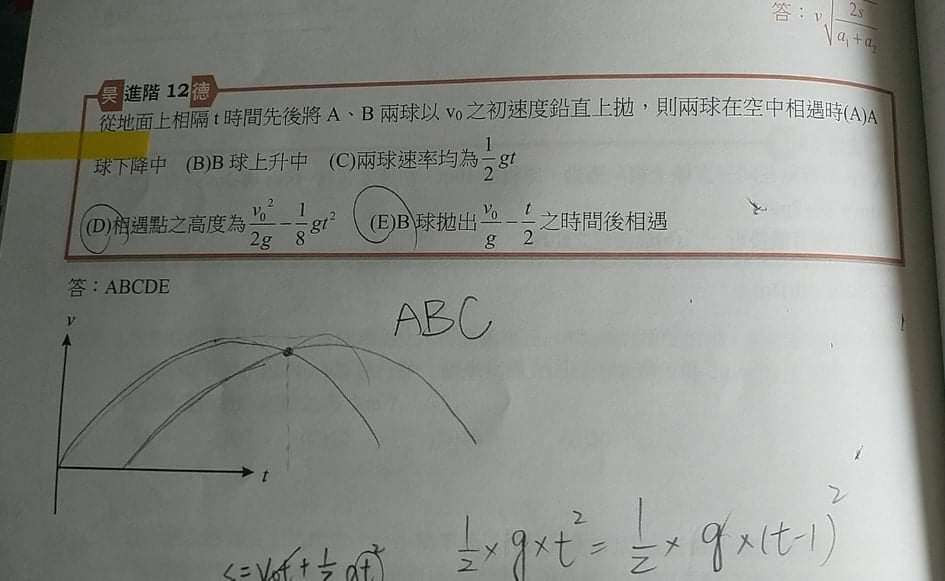 答：v√(2s/(a₁+a₂))
昊 進階 12 德
從地面上相隔 t 時間先後將 A、B 兩球以 v₀ 之初速度鉛直上拋，則兩球在空中相遇時(A)A
球下降中 (B)B 球上升中 (C)兩球速率均為 1/2 gt
(D)相遇點之高度為 v₀²/2g − 1/8 gt² (E)B 球拋出 v₀/g − t/2 之時間後相遇
答：ABCDE
ABC
v
t
1/2 × g × t² = 1/2 × g × (t-1)²
s = v₀t + 1/2 gt²